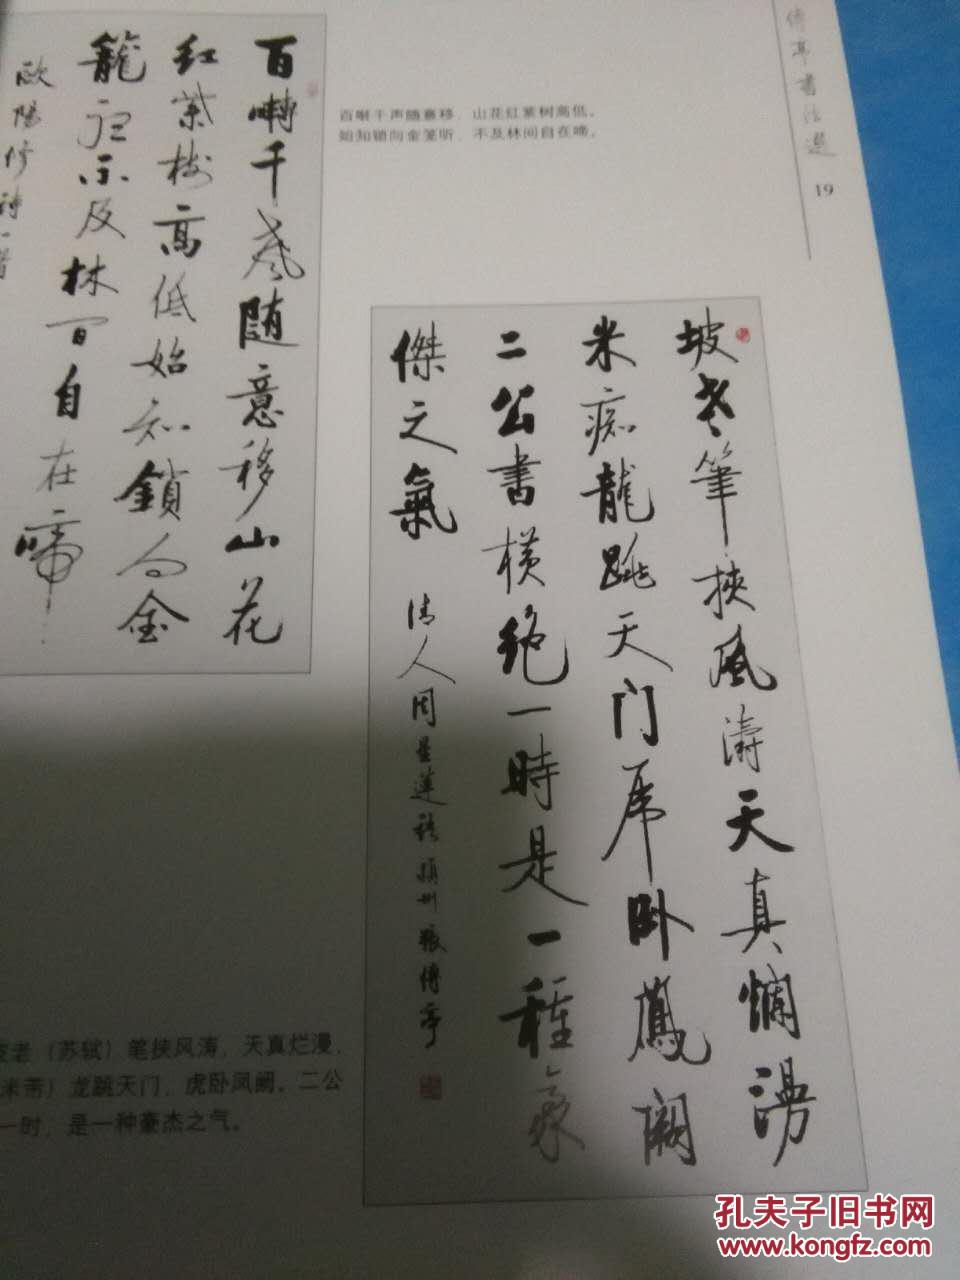 傅亭书法选
19
百啭千声随意移，山花红紫树高低。
始知锁向金笼听，不及林间自在啼。
百囀千聲随意移山花
紅紫樹高低始知鎖向金
籠聽不及林间自在啼
歐陽修詩一首
坡老筆挾風濤天真爛漫
米痴龍跳天门虎卧鳳闕
二公書橫絕一時是一種豪
傑之氣
清人周星蓮語 穎州張傅亭
老（苏轼）笔挟风涛，天真烂漫，
米芾）龙跳天门，虎卧凤阙。二公
一时，是一种豪杰之气。
孔夫子旧书网
www.kongfz.com